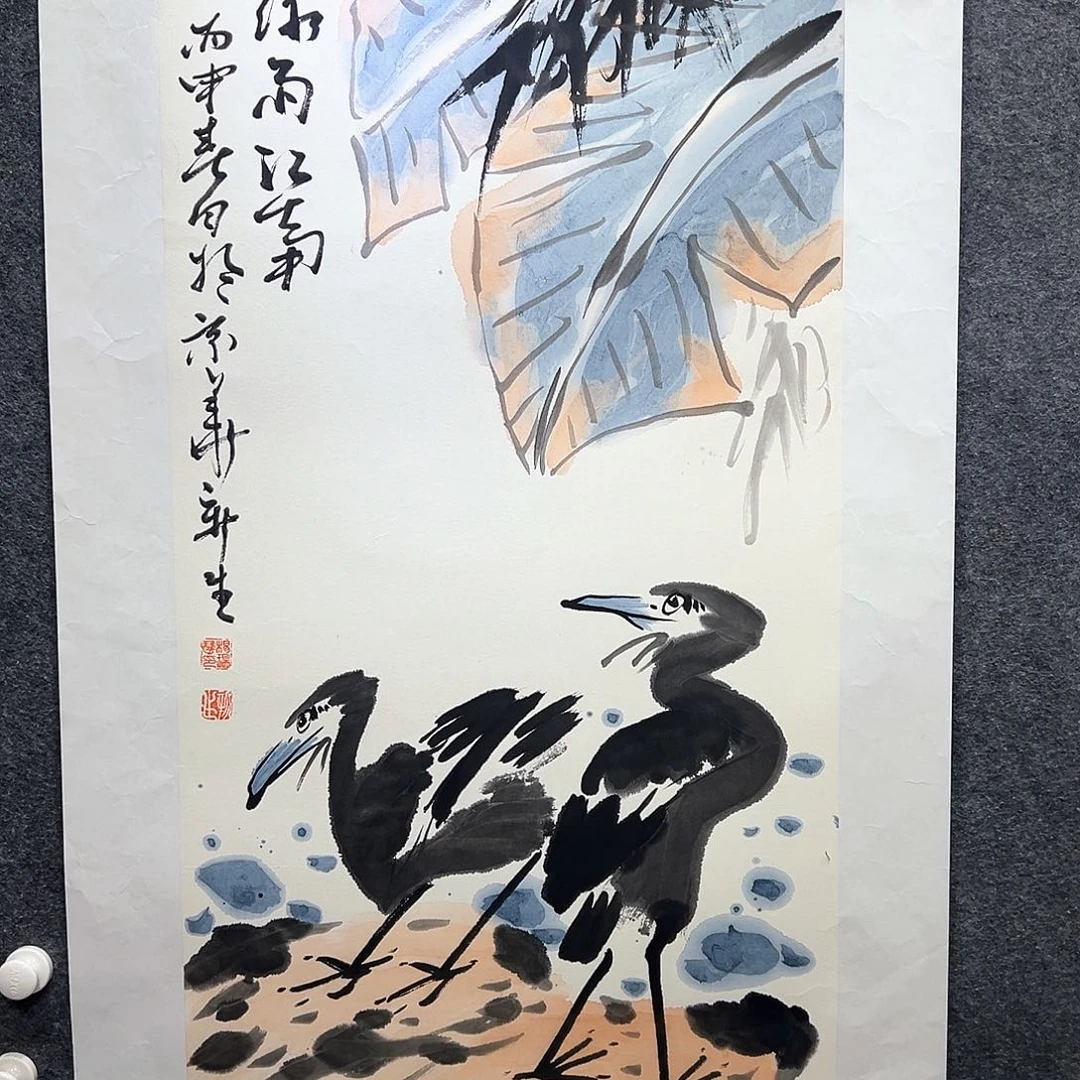 雨江南
丙申春日於京華新生